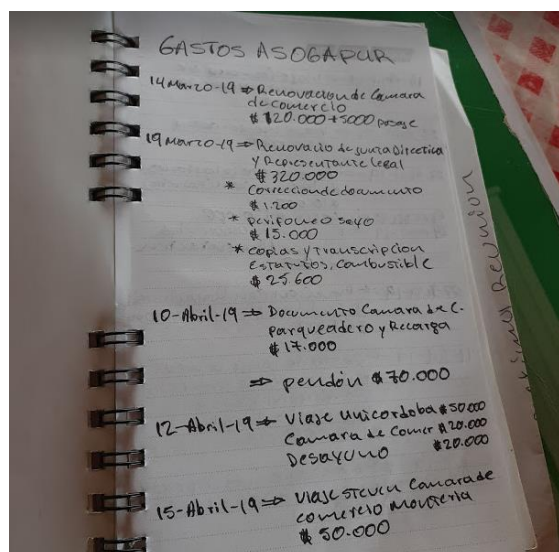 GASTOS ASOGAPUR
14 Marzo-19 ⇒ Renovacion de Camara
de comercio
$ 120.000 + 5000 pasaje
19 marzo-19 ⇒ Renovacio de junta Directica
y Representante legal
$ 320.000
* Correccion de documento
$ 1.200
* perifoneo sayo
$ 15.000
* copias y transcripcion
Estatutos, combustible
$ 25.600
10-Abril-19 ⇒ Documento Camara de C.
parqueadero y Recarga
$ 17.000
⇒ pendón $ 70.000
12-Abril-19 ⇒ Viaje Unicordoba $50.000
Camara de Comer $20.000
Desayuno $20.000
15-Abril-19 ⇒ Viaje steven Camara de
comercio Monteria
$ 50.000
Reunion